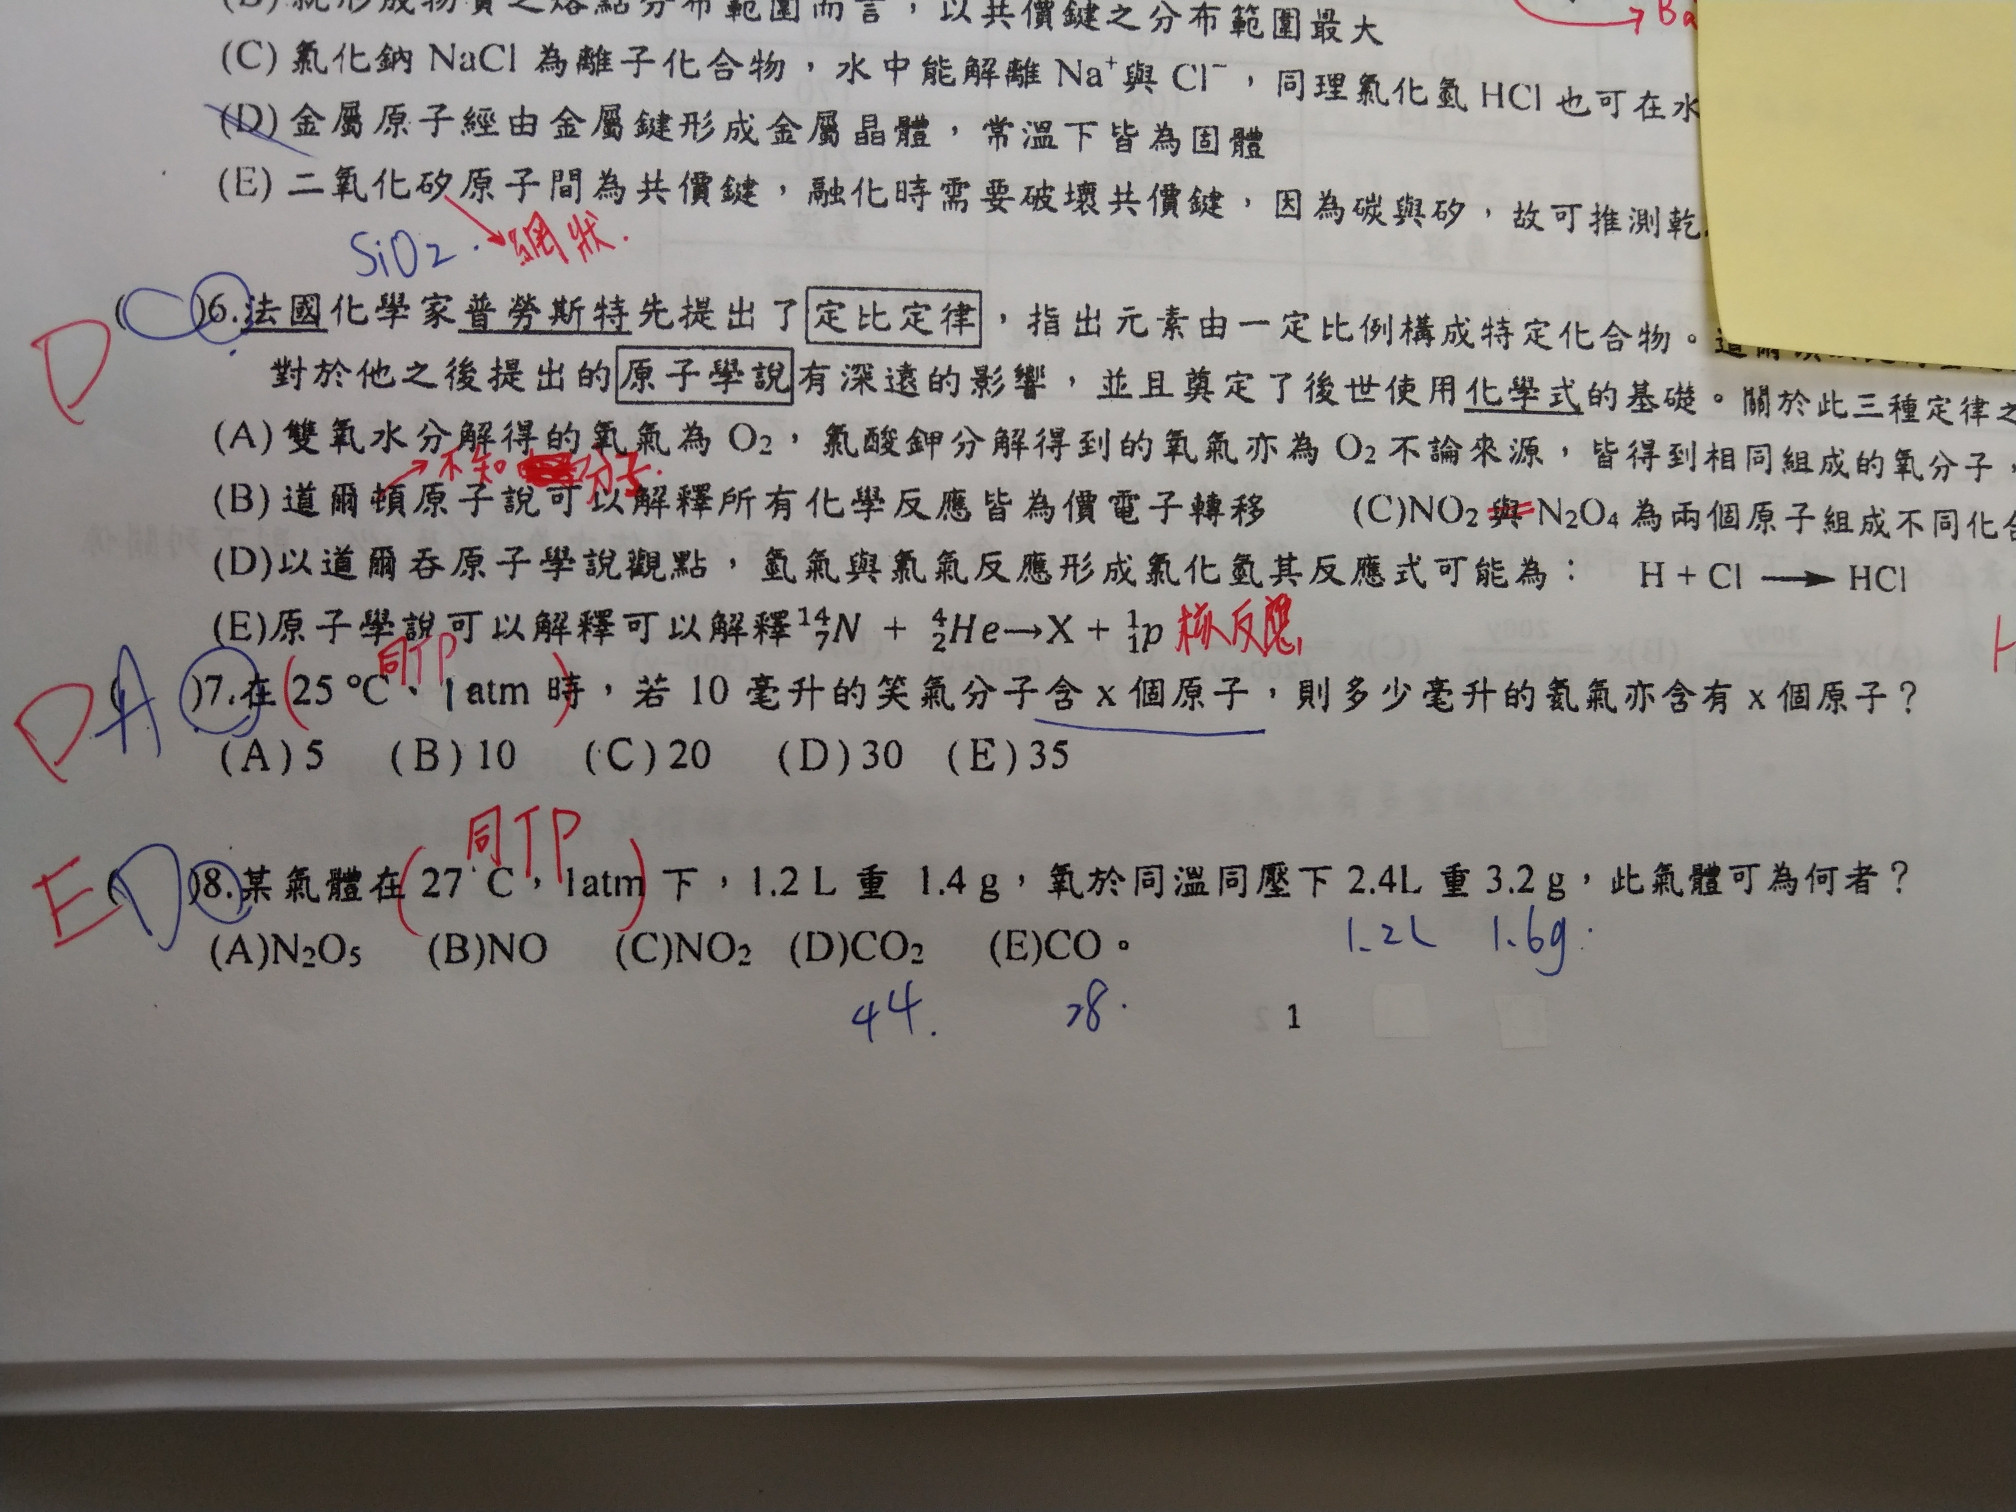 (B) 就形成物質之熔點分布範圍而言，以共價鍵之分布範圍最大
Ba
(C) 氯化鈉 NaCl 為離子化合物，水中能解離 Na⁺與 Cl⁻，同理氯化氫 HCl 也可在水
(D) 金屬原子經由金屬鍵形成金屬晶體，常溫下皆為固體
(E) 二氧化矽原子間為共價鍵，融化時需要破壞共價鍵，因為碳與矽，故可推測乾
SiO2. 網狀.
D ( C )6.法國化學家普勞斯特先提出了定比定律，指出元素由一定比例構成特定化合物。道爾頓
對於他之後提出的原子學說有深遠的影響，並且奠定了後世使用化學式的基礎。關於此三種定律之
(A) 雙氧水分解得的氧氣為 O₂，氯酸鉀分解得到的氧氣亦為 O₂ 不論來源，皆得到相同組成的氧分子，
不知 分子.
(B) 道爾頓原子說可以解釋所有化學反應皆為價電子轉移 (C)NO₂ 與 N₂O₄ 為兩個原子組成不同化合
(D)以道爾吞原子學說觀點，氫氣與氯氣反應形成氯化氫其反應式可能為： H + Cl ⟶ HCl
(E)原子學說可以解釋可以解釋¹⁴₇N + ⁴₂He→X + ¹₁p 核反應
同TP
D ( A )7.在 25 ℃、1 atm 時，若 10 毫升的笑氣分子含 x 個原子，則多少毫升的氦氣亦含有 x 個原子？
(A) 5 (B) 10 (C) 20 (D) 30 (E) 35
同TP
E ( D )8.某氣體在 27 ゚C，1atm 下，1.2 L 重 1.4 g，氧於同溫同壓下 2.4L 重 3.2 g，此氣體可為何者？
1.2L 1.6g.
(A)N₂O₅ (B)NO (C)NO₂ (D)CO₂ (E)CO。
44. 28.
1